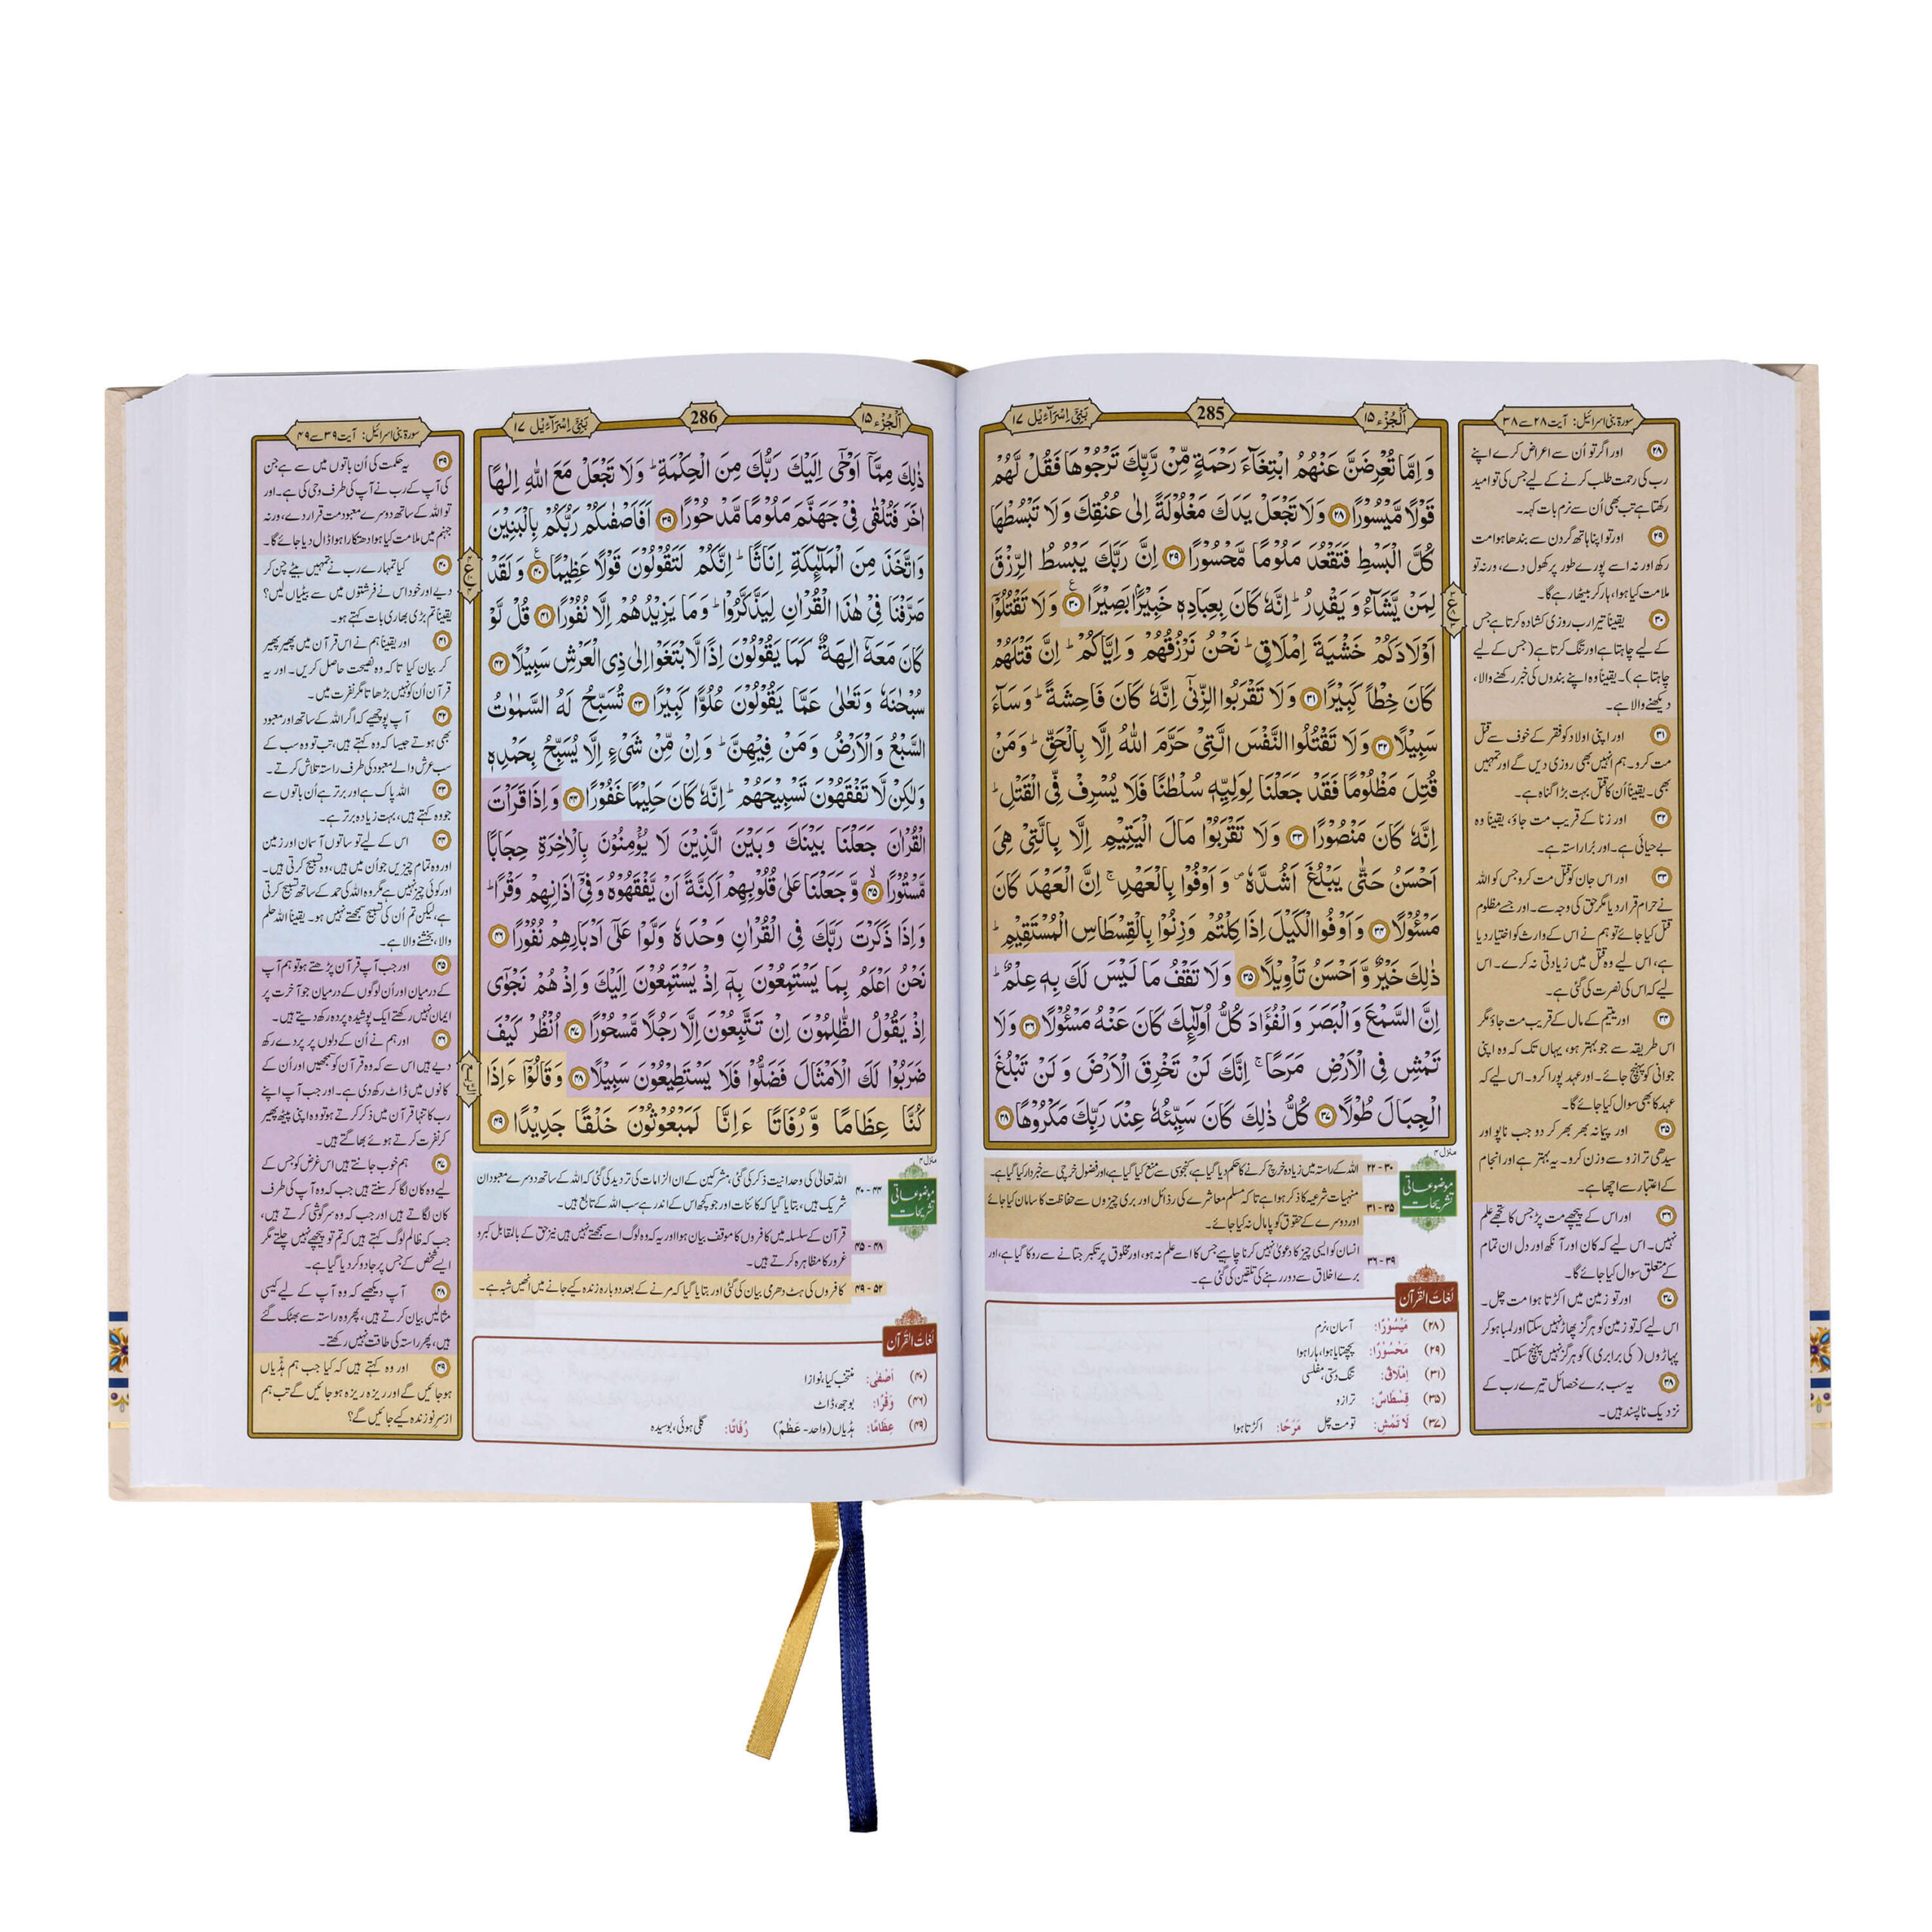 اَلْجُزْء ۱۵
285
بَنِیْٓ اِسْرَآءِیْل ۱۷
وَ اِمَّا تُعْرِضَنَّ عَنْهُمُ ابْتِغَآءَ رَحْمَةٍ مِّنْ رَّبِّكَ تَرْجُوْهَا فَقُلْ لَّهُمْ
قَوْلًا مَّیْسُوْرًا ۲۸ وَ لَا تَجْعَلْ یَدَكَ مَغْلُوْلَةً اِلٰى عُنُقِكَ وَ لَا تَبْسُطْهَا
كُلَّ الْبَسْطِ فَتَقْعُدَ مَلُوْمًا مَّحْسُوْرًا ۲۹ اِنَّ رَبَّكَ یَبْسُطُ الرِّزْقَ
لِمَنْ یَّشَآءُ وَ یَقْدِرُ ؕ اِنَّهٗ كَانَ بِعِبَادِهٖ خَبِیْرًۢا بَصِیْرًا ۳۰ وَ لَا تَقْتُلُوْۤا
اَوْلَادَكُمْ خَشْیَةَ اِمْلَاقٍ ؕ نَحْنُ نَرْزُقُهُمْ وَ اِیَّاكُمْ ؕ اِنَّ قَتْلَهُمْ
كَانَ خِطْاً كَبِیْرًا ۳۱ وَ لَا تَقْرَبُوا الزِّنٰۤى اِنَّهٗ كَانَ فَاحِشَةً ؕ وَ سَآءَ
سَبِیْلًا ۳۲ وَ لَا تَقْتُلُوا النَّفْسَ الَّتِیْ حَرَّمَ اللّٰهُ اِلَّا بِالْحَقِّ ؕ وَ مَنْ
قُتِلَ مَظْلُوْمًا فَقَدْ جَعَلْنَا لِوَلِیِّهٖ سُلْطٰنًا فَلَا یُسْرِفْ فِّی الْقَتْلِ ؕ
اِنَّهٗ كَانَ مَنْصُوْرًا ۳۳ وَ لَا تَقْرَبُوْا مَالَ الْیَتِیْمِ اِلَّا بِالَّتِیْ هِیَ
اَحْسَنُ حَتّٰى یَبْلُغَ اَشُدَّهٗ ۪ وَ اَوْفُوْا بِالْعَهْدِ ۚ اِنَّ الْعَهْدَ كَانَ
مَسْـُٔوْلًا ۳۴ وَ اَوْفُوا الْكَیْلَ اِذَا كِلْتُمْ وَ زِنُوْا بِالْقِسْطَاسِ الْمُسْتَقِیْمِ ؕ
ذٰلِكَ خَیْرٌ وَّ اَحْسَنُ تَاْوِیْلًا ۳۵ وَ لَا تَقْفُ مَا لَیْسَ لَكَ بِهٖ عِلْمٌ ؕ
اِنَّ السَّمْعَ وَ الْبَصَرَ وَ الْفُؤَادَ كُلُّ اُولٰٓىِٕكَ كَانَ عَنْهُ مَسْـُٔوْلًا ۳۶ وَ لَا
تَمْشِ فِی الْاَرْضِ مَرَحًا ۚ اِنَّكَ لَنْ تَخْرِقَ الْاَرْضَ وَ لَنْ تَبْلُغَ
الْجِبَالَ طُوْلًا ۳۷ كُلُّ ذٰلِكَ كَانَ سَیِّئُهٗ عِنْدَ رَبِّكَ مَكْرُوْهًا ۳۸
منزل ۴
سورۃ بنی اسرائیل: آیت ۲۸ سے ۳۸
۲۸ اور اگر تو اُن سے اعراض کرے اپنے
رب کی رحمت طلب کرنے کے لیے جس کی تو امید
رکھتا ہے تب بھی اُن سے نرم بات کہہ۔
۲۹ اور تو اپنا ہاتھ گردن سے بندھا ہوا مت
رکھ اور نہ اسے پورے طور پر کھول دے، ورنہ تو
ملامت کیا ہوا، ہار کر بیٹھا رہے گا۔
۳۰ یقیناً تیرا رب روزی کشادہ کرتا ہے جس
کے لیے چاہتا ہے اور تنگ کرتا ہے (جس کے لیے
چاہتا ہے)۔ یقیناً وہ اپنے بندوں کی خبر رکھنے والا،
دیکھنے والا ہے۔
۳۱ اور اپنی اولاد کو فقر کے خوف سے قتل
مت کرو۔ ہم انہیں بھی روزی دیں گے اور تمہیں
بھی۔ یقیناً اُن کا قتل بہت بڑا گناہ ہے۔
۳۲ اور زنا کے قریب مت جاؤ، یقیناً وہ
بے حیائی ہے۔ اور بُرا راستہ ہے۔
۳۳ اور اس جان کو قتل مت کرو جس کو اللہ
نے حرام قرار دیا مگر حق کی وجہ سے۔ اور جسے مظلوم
قتل کیا جائے تو ہم نے اس کے وارث کو اختیار دیا
ہے، اس لیے وہ قتل میں زیادتی نہ کرے۔ اس
لیے کہ اس کی نصرت کی گئی ہے۔
۳۴ اور یتیم کے مال کے قریب مت جاؤ مگر
اس طریقہ سے جو بہتر ہو، یہاں تک کہ وہ اپنی
جوانی کو پہنچ جائے۔ اور عہد پورا کرو۔ اس لیے کہ
عہد کا بھی سوال کیا جائے گا۔
۳۵ اور پیمانہ بھر بھر کر دو جب ناپو اور
سیدھی ترازو سے وزن کرو۔ یہ بہتر ہے اور انجام
کے اعتبار سے اچھا ہے۔
۳۶ اور اس کے پیچھے مت پڑ جس کا تجھے علم
نہیں۔ اس لیے کہ کان اور آنکھ اور دل ان تمام
کے متعلق سوال کیا جائے گا۔
۳۷ اور تو زمین میں اکڑتا ہوا مت چل۔
اس لیے کہ تو زمین کو ہرگز پھاڑ نہیں سکتا اور لمبا ہو کر
پہاڑوں (کی برابری) کو ہرگز نہیں پہنچ سکتا۔
۳۸ یہ سب برے خصائل تیرے رب کے
نزدیک ناپسند ہیں۔
موضوعاتی
تشریحات
۲۲ - ۳۰ اللہ کے راستہ میں زیادہ خرچ کرنے کا حکم دیا گیا ہے، کنجوسی سے منع کیا گیا ہے، اور فضول خرچی سے خبردار کیا گیا ہے۔
۳۱ - ۳۵ منہیات شرعیہ کا ذکر ہوا ہے تاکہ مسلم معاشرے کی رذائل اور بری چیزوں سے حفاظت کا سامان کیا جائے
اور دوسرے کے حقوق کو پامال نہ کیا جائے۔
۳۶ - ۳۹ انسان کو ایسی چیز کا دعویٰ نہیں کرنا چاہیے جس کا اسے علم نہ ہو، اور مخلوق پر تکبر جتانے سے روکا گیا ہے، اور
برے اخلاق سے دور رہنے کی تلقین کی گئی ہے۔
لُغَاتُ الْقُرْآن
(۲۸) مَیْسُوْرًا: آسان، نرم
(۲۹) مَحْسُوْرًا: پچھتایا ہوا، ہارا ہوا
(۳۱) اِمْلَاقٍ: تنگ دستی، مفلسی
(۳۵) قِسْطَاسٌ: ترازو
(۳۷) لَا تَمْشِ: تو مت چل مَرَحًا: اکڑتا ہوا
اَلْجُزْء ۱۵
286
بَنِیْٓ اِسْرَآءِیْل ۱۷
ذٰلِكَ مِمَّاۤ اَوْحٰۤى اِلَیْكَ رَبُّكَ مِنَ الْحِكْمَةِ ؕ وَ لَا تَجْعَلْ مَعَ اللّٰهِ اِلٰهًا
اٰخَرَ فَتُلْقٰى فِیْ جَهَنَّمَ مَلُوْمًا مَّدْحُوْرًا ۳۹ اَفَاَصْفٰىكُمْ رَبُّكُمْ بِالْبَنِیْنَ
وَ اتَّخَذَ مِنَ الْمَلٰٓىِٕكَةِ اِنَاثًا ؕ اِنَّكُمْ لَتَقُوْلُوْنَ قَوْلًا عَظِیْمًا ۴۰ وَ لَقَدْ
صَرَّفْنَا فِیْ هٰذَا الْقُرْاٰنِ لِیَذَّكَّرُوْا ؕ وَ مَا یَزِیْدُهُمْ اِلَّا نُفُوْرًا ۴۱ قُلْ لَّوْ
كَانَ مَعَهٗۤ اٰلِهَةٌ كَمَا یَقُوْلُوْنَ اِذًا لَّابْتَغَوْا اِلٰى ذِی الْعَرْشِ سَبِیْلًا ۴۲
سُبْحٰنَهٗ وَ تَعٰلٰى عَمَّا یَقُوْلُوْنَ عُلُوًّا كَبِیْرًا ۴۳ تُسَبِّحُ لَهُ السَّمٰوٰتُ
السَّبْعُ وَ الْاَرْضُ وَ مَنْ فِیْهِنَّ ؕ وَ اِنْ مِّنْ شَیْءٍ اِلَّا یُسَبِّحُ بِحَمْدِهٖ
وَ لٰكِنْ لَّا تَفْقَهُوْنَ تَسْبِیْحَهُمْ ؕ اِنَّهٗ كَانَ حَلِیْمًا غَفُوْرًا ۴۴ وَ اِذَا قَرَاْتَ
الْقُرْاٰنَ جَعَلْنَا بَیْنَكَ وَ بَیْنَ الَّذِیْنَ لَا یُؤْمِنُوْنَ بِالْاٰخِرَةِ حِجَابًا
مَّسْتُوْرًا ۴۵ وَّ جَعَلْنَا عَلٰى قُلُوْبِهِمْ اَكِنَّةً اَنْ یَّفْقَهُوْهُ وَ فِیْۤ اٰذَانِهِمْ وَقْرًا ؕ
وَ اِذَا ذَكَرْتَ رَبَّكَ فِی الْقُرْاٰنِ وَحْدَهٗ وَلَّوْا عَلٰۤى اَدْبَارِهِمْ نُفُوْرًا ۴۶
نَحْنُ اَعْلَمُ بِمَا یَسْتَمِعُوْنَ بِهٖۤ اِذْ یَسْتَمِعُوْنَ اِلَیْكَ وَ اِذْ هُمْ نَجْوٰۤى
اِذْ یَقُوْلُ الظّٰلِمُوْنَ اِنْ تَتَّبِعُوْنَ اِلَّا رَجُلًا مَّسْحُوْرًا ۴۷ اُنْظُرْ كَیْفَ
ضَرَبُوْا لَكَ الْاَمْثَالَ فَضَلُّوْا فَلَا یَسْتَطِیْعُوْنَ سَبِیْلًا ۴۸ وَ قَالُوْۤا ءَاِذَا
كُنَّا عِظَامًا وَّ رُفَاتًا ءَاِنَّا لَمَبْعُوْثُوْنَ خَلْقًا جَدِیْدًا ۴۹
منزل ۴
سورۃ بنی اسرائیل: آیت ۳۹ سے ۴۹
۳۹ یہ حکمت کی اُن باتوں میں سے ہے جن
کی آپ کے رب نے آپ کی طرف وحی کی ہے۔ اور
تو اللہ کے ساتھ دوسرے معبود مت قرار دے، ورنہ
جہنم میں ملامت کیا ہوا دھتکارا ہوا ڈال دیا جائے گا۔
۴۰ کیا تمہارے رب نے تمہیں بیٹے چن کر
دیے اور خود اس نے فرشتوں میں سے بیٹیاں لیں؟
یقیناً تم بڑی بھاری بات کہتے ہو۔
۴۱ اور یقیناً ہم نے اس قرآن میں پھیر پھیر
کر بیان کیا تاکہ وہ نصیحت حاصل کریں۔ اور یہ
قرآن اُن کو نہیں بڑھاتا مگر نفرت میں۔
۴۲ آپ پوچھیے کہ اگر اللہ کے ساتھ اور معبود
بھی ہوتے جیسا کہ وہ کہتے ہیں، تب تو وہ سب کے
سب عرش والے معبود کی طرف راستہ تلاش کرتے۔
۴۳ اللہ پاک ہے اور برتر ہے اُن باتوں سے
جو وہ کہتے ہیں، بہت زیادہ برتر ہے۔
۴۴ اس کے لیے تو ساتوں آسمان اور زمین
اور وہ تمام چیزیں جو اُن میں ہیں، وہ تسبیح کرتی ہیں۔
اور کوئی چیز نہیں ہے مگر وہ اللہ کی حمد کے ساتھ تسبیح کرتی
ہے، لیکن تم اُن کی تسبیح سمجھتے نہیں ہو۔ یقیناً اللہ حلم
والا، بخشنے والا ہے۔
۴۵ اور جب آپ قرآن پڑھتے ہو تو ہم آپ
کے درمیان اور اُن لوگوں کے درمیان جو آخرت پر
ایمان نہیں رکھتے ایک پوشیدہ پردہ رکھ دیتے ہیں۔
۴۶ اور ہم نے اُن کے دلوں پر پردے رکھ
دیے ہیں اس سے کہ وہ قرآن کو سمجھیں اور اُن کے
کانوں میں ڈاٹ رکھ دی ہے۔ اور جب آپ اپنے
رب کا تنہا قرآن میں ذکر کرتے ہو تو وہ اپنی پیٹھ پھیر
کر نفرت کرتے ہوئے بھاگتے ہیں۔
۴۷ ہم خوب جانتے ہیں اس غرض کو جس کے
لیے وہ کان لگا کر سنتے ہیں جب کہ وہ آپ کی طرف
کان لگاتے ہیں اور جب کہ وہ سرگوشی کرتے ہیں،
جب کہ ظالم لوگ کہتے ہیں کہ تم تو پیچھے نہیں چلتے مگر
ایسے شخص کے جس پر جادو کر دیا گیا ہے۔
۴۸ آپ دیکھیے کہ وہ آپ کے لیے کیسی
مثالیں بیان کرتے ہیں، پھر وہ راستہ سے بھٹک گئے
ہیں، پھر راستہ کی طاقت نہیں رکھتے۔
۴۹ اور وہ کہتے ہیں کہ کیا جب ہم ہڈیاں
ہو جائیں گے اور ریزہ ریزہ ہو جائیں گے تب ہم
از سرِ نو زندہ کیے جائیں گے؟
موضوعاتی
تشریحات
۴۰ - ۴۴ اللہ تعالیٰ کی وحدانیت ذکر کی گئی، مشرکین کے ان الزامات کی تردید کی گئی کہ اللہ کے ساتھ دوسرے معبودان
شریک ہیں، بتایا گیا کہ کائنات اور جو کچھ اس کے اندر ہے سب اللہ کے تابع ہیں۔
۴۵ - ۴۸ قرآن کے سلسلہ میں کافروں کا موقف بیان ہوا اور یہ کہ وہ لوگ اسے سمجھتے نہیں ہیں نیز حق کے بالمقابل کبر و
غرور کا مظاہرہ کرتے ہیں۔
۴۹ - ۵۲ کافروں کی ہٹ دھرمی بیان کی گئی اور بتایا گیا کہ مرنے کے بعد دوبارہ زندہ کیے جانے میں انھیں شبہ ہے۔
لُغَاتُ الْقُرْآن
(۴۰) اَصْفٰى: منتخب کیا، نوازا
(۴۶) وَقْرًا: بوجھ، ڈاٹ
(۴۹) عِظَامًا: ہڈیاں (واحد- عَظْمٌ) رُفَاتًا: گلی ہوئی، بوسیدہ